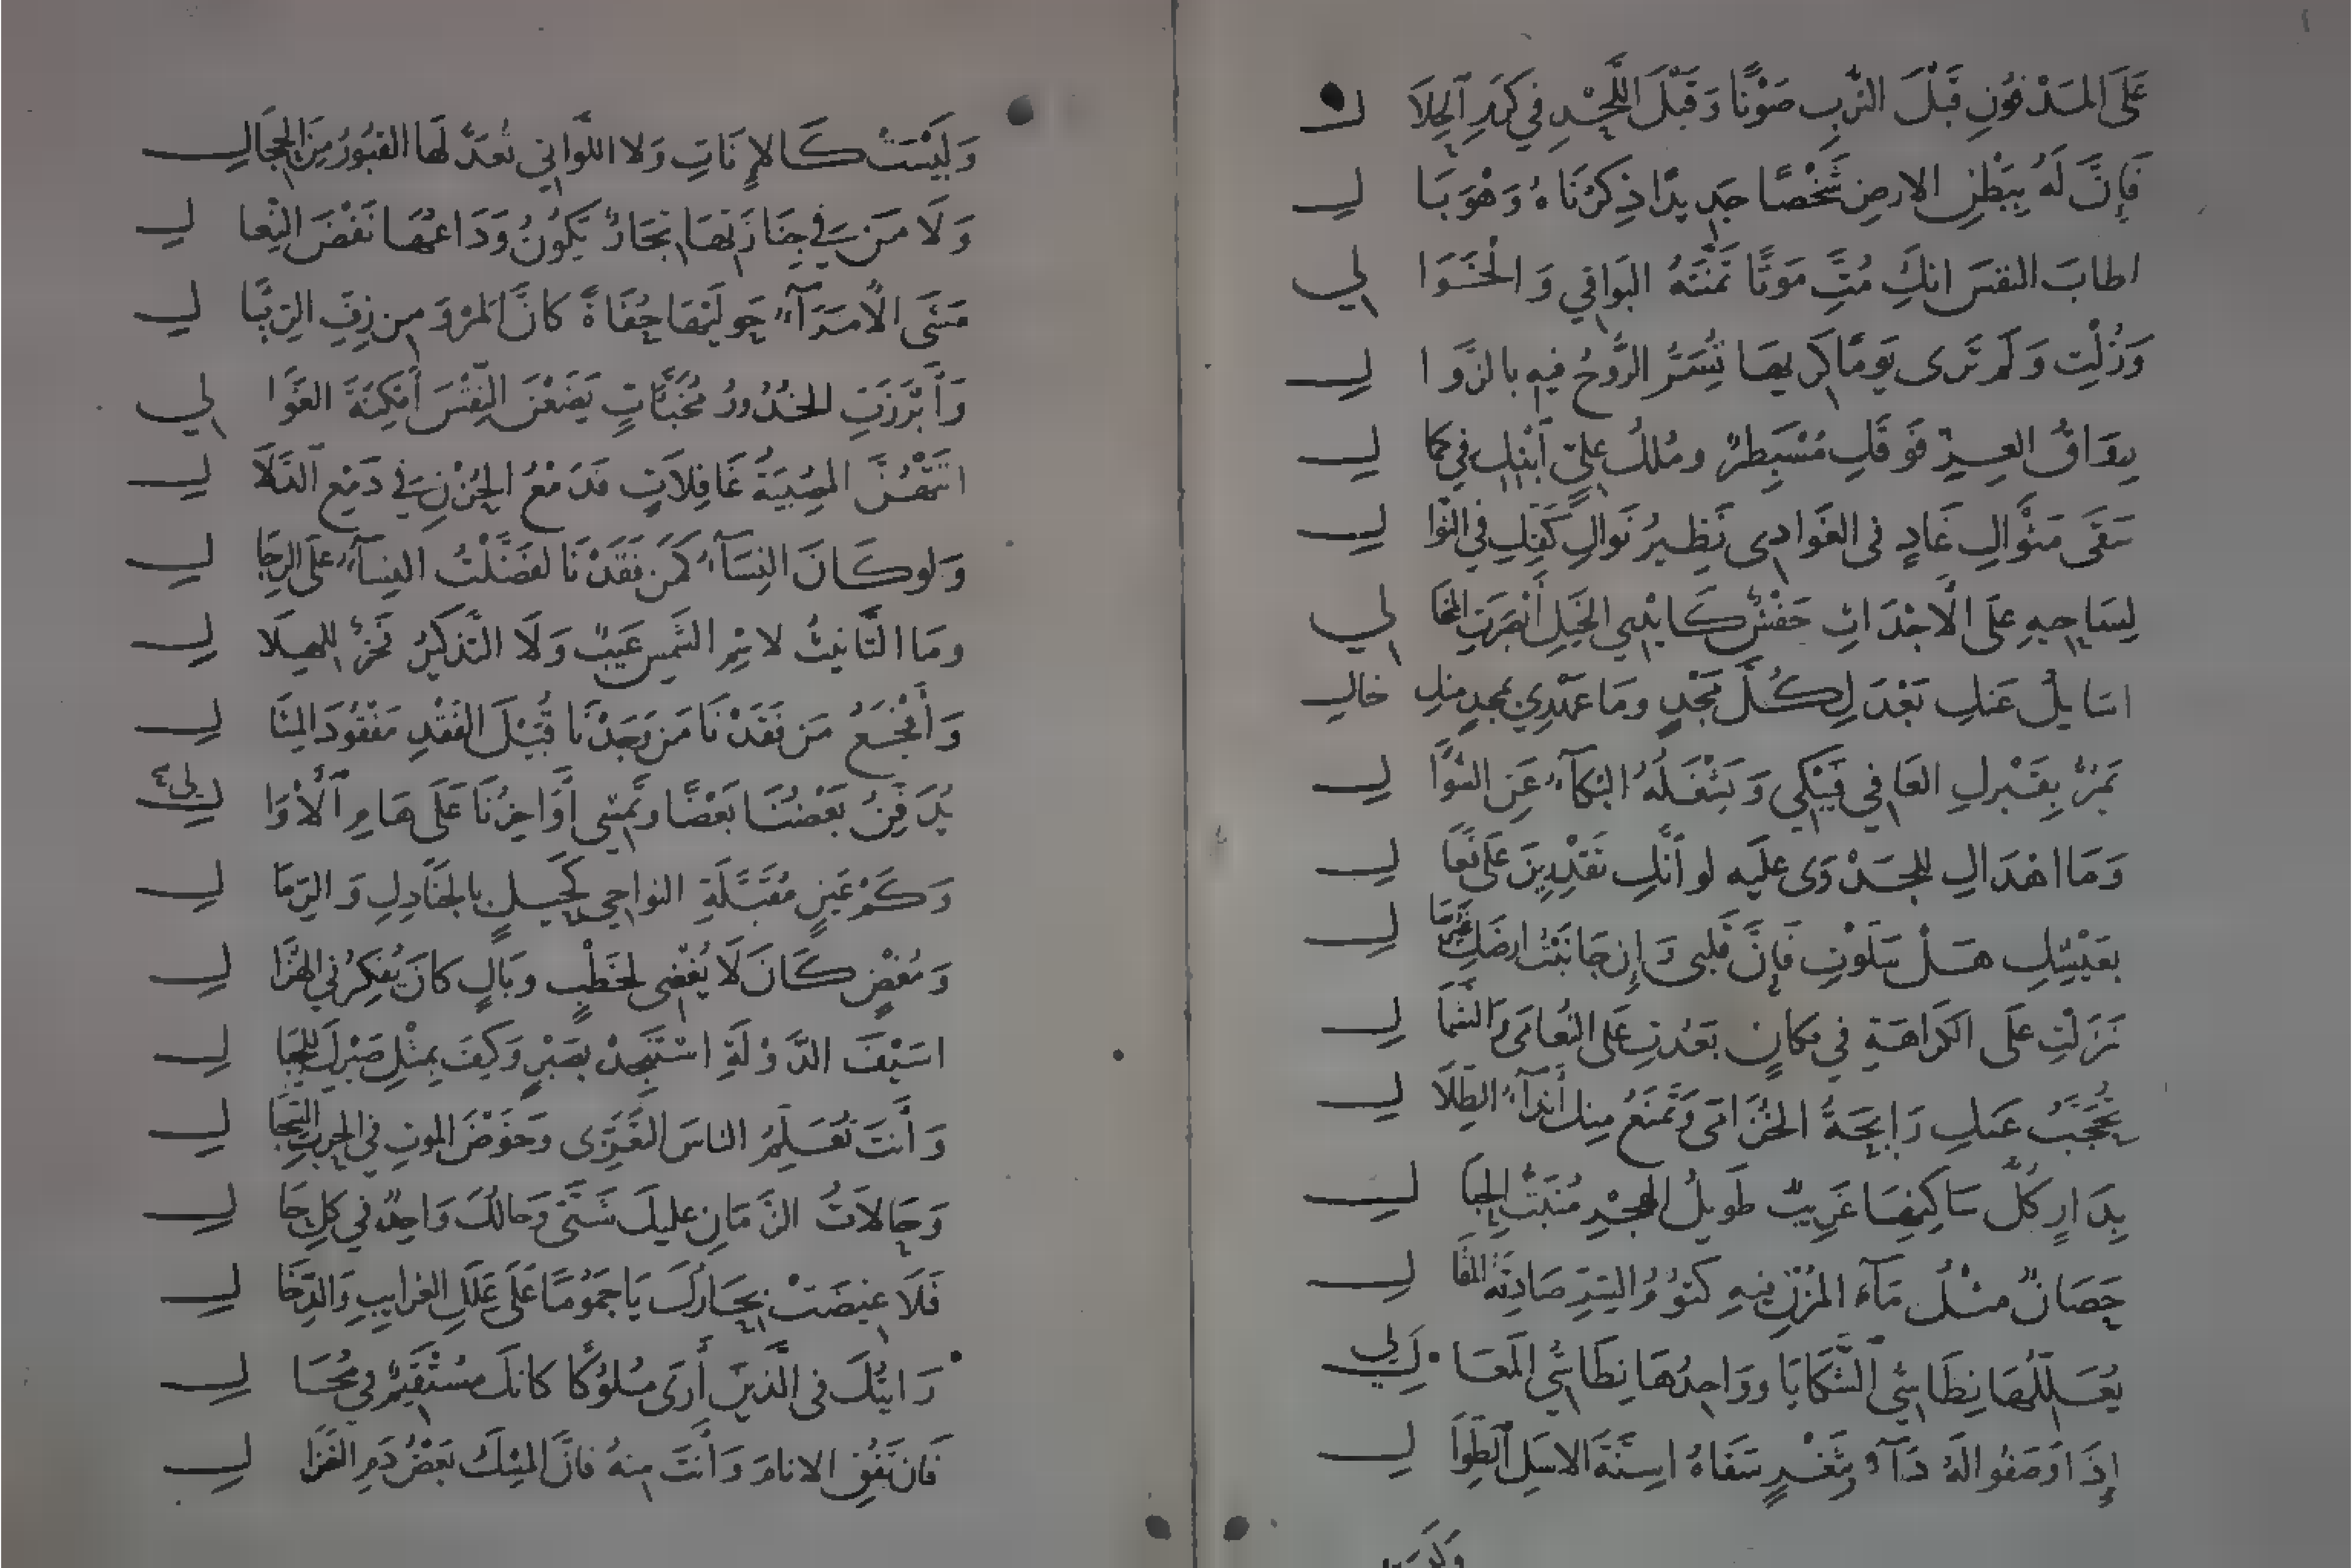 عَلَى المَدْفُونِ قَبْلَ التُّرْبِ صَوْنًا وَقَبْلَ اللَّحْدِ فِي كَرَمِ الخِلَالِ
فَإِنَّ لَهُ بِبَطْنِ الارضِ شَخْصًا جَدِيدًا ذِكْرُنَاهُ وَهْوَ بَالِ
اطابَ النفسَ انكِ مُتِّ مَوْتًا تَمَنَّتْهُ البَوَاقِي وَالْخَوَالِي
وَزُلْتِ وَلَمْ تَرَى يَوْمًا كَرِيهًا تُسَرُّ الرُّوحُ فِيهِ بالزَّوَالِ
رِوَاقُ العِزِّ فَوْقَكِ مُسْبَطِرٌّ ومُلكُ عَلِيٍّ ابْنِكِ فِي كَمَالِ
سَقَى مَثْوَاكِ غَادٍ فى الغَوَادِى نَظِيرُ نَوَالِ كَفِّكِ فِي النَّوَالِ
لِسَاحِيهِ عَلَى الأَجْدَاثِ حَفْشٌ كَايْدِي الخَيْلِ أَبْصَرَتِ المَخَالِي
اسَايلُ عَنكِ بَعْدَكِ كُلَّ مَجْدٍ ومَا عَهْدِي بمجدٍ منكِ خالِ
يَمُرُّ بِقَبْرِكِ العَافِي فَيَبْكِي وَيَشْغَلُهُ البُكَآءُ عَنِ السُّوَالِ
وَمَا اهْدَاكِ لِلْجَدْوَى عَلَيْهِ لو أنَّكِ تَقْدِرِينَ عَلَى فَعَالِ
بعَيْشِكِ هَلْ سَلَوْتِ فَإِنَّ قَلبى وَإِن جَانَبْتُ ارضَكِ غَيْرُ سَالِ
نَزَلْتِ عَلَى الكَرَاهَةِ فِي مَكانٍ بَعُدْتِ عَلى النُّعَامَى وَالشَّمَالِ
تُحَجَّبُ عَنكِ رَايِحَةُ الخُزَامَى وَتُمْنَعُ مِنكِ أَنْدَآءُ الطِّلَالِ
بِدَارٍ كُلُّ سَاكِنِهَا غَرِيبٌ طَوِيلُ الهَجْرِ مُنْبَتُّ الحِبَالِ
حَصَانٌ مِثْلُ مَآءِ المُزْنِ فِيهِ كَتُومُ السِّرِّ صَادِقَةُ المَقَالِ
يُعَلِّلُهَا نِطَاسِيُّ الشَّكَايَا ووَاحِدُهَا نِطَاسِيُّ المَعَالِي
إِذَا وَصَفُوا لَهُ دَآءً بِثَغْرٍ سَقَاهُ اسِنَّةَ الاسَلِ الطِّوَالِ
وَلَيْسَتْ كَالإِنَاثِ وَلا اللَّوَاتِي تُعَدُّ لَهَا القُبُورُ مِنَ الحِجَالِ
وَلَا مَنْ فِي جَنَازَتِهَا تِجَارٌ يَكُونُ وَدَاعُهَا نَفْضَ النِّعَالِ
مَشَى الأُمَرَآءُ حَوْلَيْهَا حُفَاةً كَانَّ المَرْوَ مِن زِفِّ الرِّئَالِ
وَأَبْرَزَتِ الخُدُورُ مُخَبَّآتٍ يَضَعْنَ النِّقْسَ أَمْكِنَةَ الغَوَالِي
اتَتْهُنَّ المُصِيبَةُ غَافِلَاتٍ فَدَمْعُ الحُزْنِ فِي دَمْعِ الدَّلَالِ
وَلَو كَانَ النِّسَآءُ كَمَن فَقَدْنَا لَفُضِّلَتْ النِّسَآءُ عَلَى الرِّجَالِ
ومَا التَّانِيثُ لاسْمِ الشَّمسِ عَيْبٌ وَلَا التَّذكِيرُ فَخْرٌ لِلهِلَالِ
وَأَفْجَعُ مَن فَقَدْنَا مَن وَجَدْنَا قُبَيْلَ الفَقْدِ مَفْقُودَ المِثَالِ
يُدَفِّنُ بَعْضُنَا بَعْضًا وَتَمْشِى أَوَاخِرُنَا عَلَى هَامِ الأَوَالِي
وَكَمْ عَيْنٍ مُقَبَّلَةِ النواحِي كَحِيلٍ بالجَنَادِلِ وَالرِّمَالِ
وَمُغْضٍ كَانَ لَا يُغْضِى لِخَطْبٍ وبَالٍ كانَ يُفْكِرُ فِي الهُزَالِ
اسَيْفَ الدَّوْلَةِ اسْتَنْجِدْ بصَبْرٍ وَكَيْفَ بِمِثْلِ صَبْرِكَ لِلْجِبَالِ
وَأَنتَ تُعَلِّمُ الناسَ التَّعَزِّى وَخَوْضَ المَوتِ فِي الحَرْبِ السِّجَالِ
وَحَالاَتُ الزَّمَانِ عَلَيكَ شَتَّى وَحالُكَ وَاحِدٌ فِي كُلِّ حَالِ
فَلَا غِيضَتْ بِحَارُكَ يَا جَمُومًا عَلَى عَلَلِ الغَرايبِ وَالدِّخَالِ
رَايتُكَ فى الَّذينَ أَرَى مُلُوكًا كَانَكَ مُسْتَقِيمٌ فِي مُحَالِ
فَان تَفُقِ الانامَ وَأَنتَ مِنهُمْ فَانَّ المِسْكَ بَعْضُ دَمِ الغَزَالِ